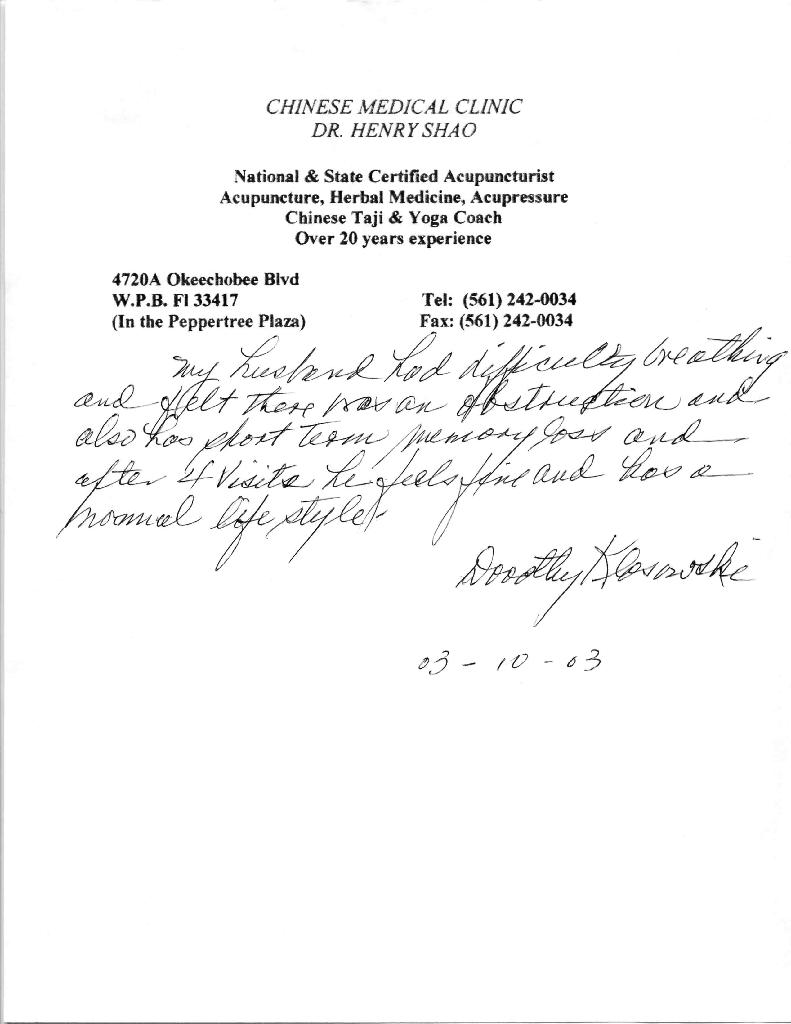 CHINESE MEDICAL CLINIC
DR. HENRY SHAO
National & State Certified Acupuncturist
Acupuncture, Herbal Medicine, Acupressure
Chinese Taji & Yoga Coach
Over 20 years experience
4720A Okeechobee Blvd
W.P.B. Fl 33417 Tel: (561) 242-0034
(In the Peppertree Plaza) Fax: (561) 242-0034
My husband had difficulty breathing
and felt there was an obstruction and
also has short term memory loss and
after 4 visits he feels fine and has a
normal life style.
Dorothy Klosowski
03-10-03